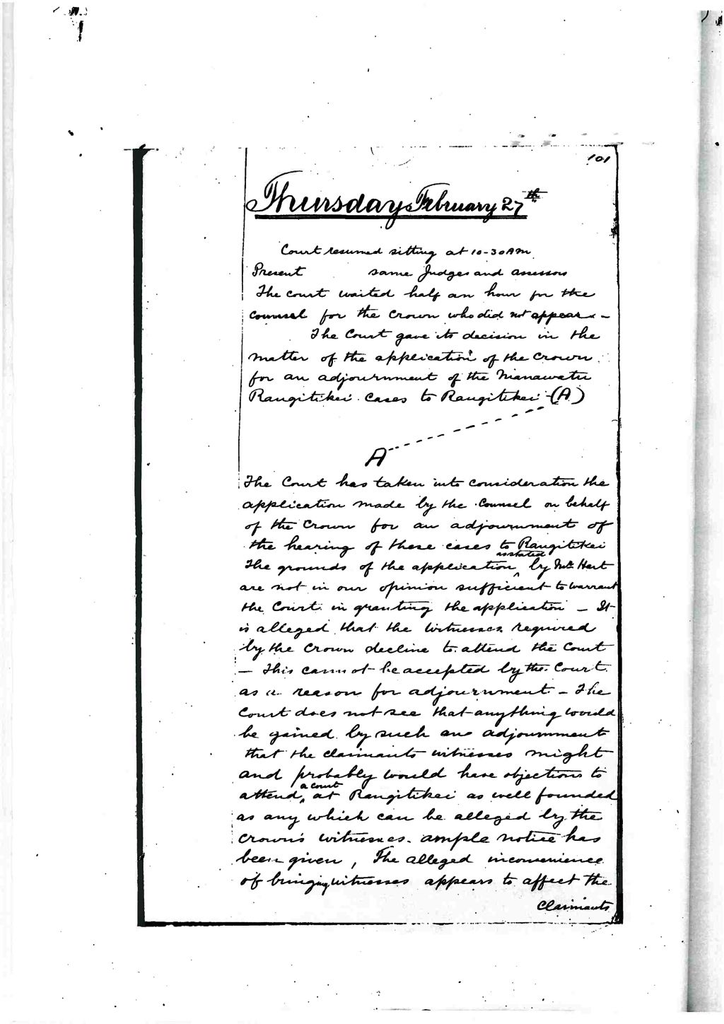 101
Thursday February 27th
Court resumed sitting at 10-30 AM
Present same Judges and assessors
The court waited half an hour for the
counsel for the Crown who did not appear -
The Court gave its decision in the
matter of the application of the Crown
for an adjournment of the Manawatu
Rangitikei cases to Rangitikei - (A)
A
The Court has taken into consideration the
application made by the Counsel on behalf
of the Crown for an adjournment of
the hearing of these cases to Rangitikei
The grounds of the application as stated by Mr. Hart
are not in our opinion sufficient to warrant
the Court in granting the application - It
is alleged that the witnesses required
by the Crown decline to attend the Court
- This cannot be accepted by the Court
as a reason for adjournment - The
Court does not see that anything would
be gained by such an adjournment
that the claimants witnesses might
and probably would have objections to
attend a court at Rangitikei as well founded
as any which can be alleged by the
Crown's witnesses. ample notice has
been given, The alleged inconvenience
of bringing witnesses appears to affect the
Claimants